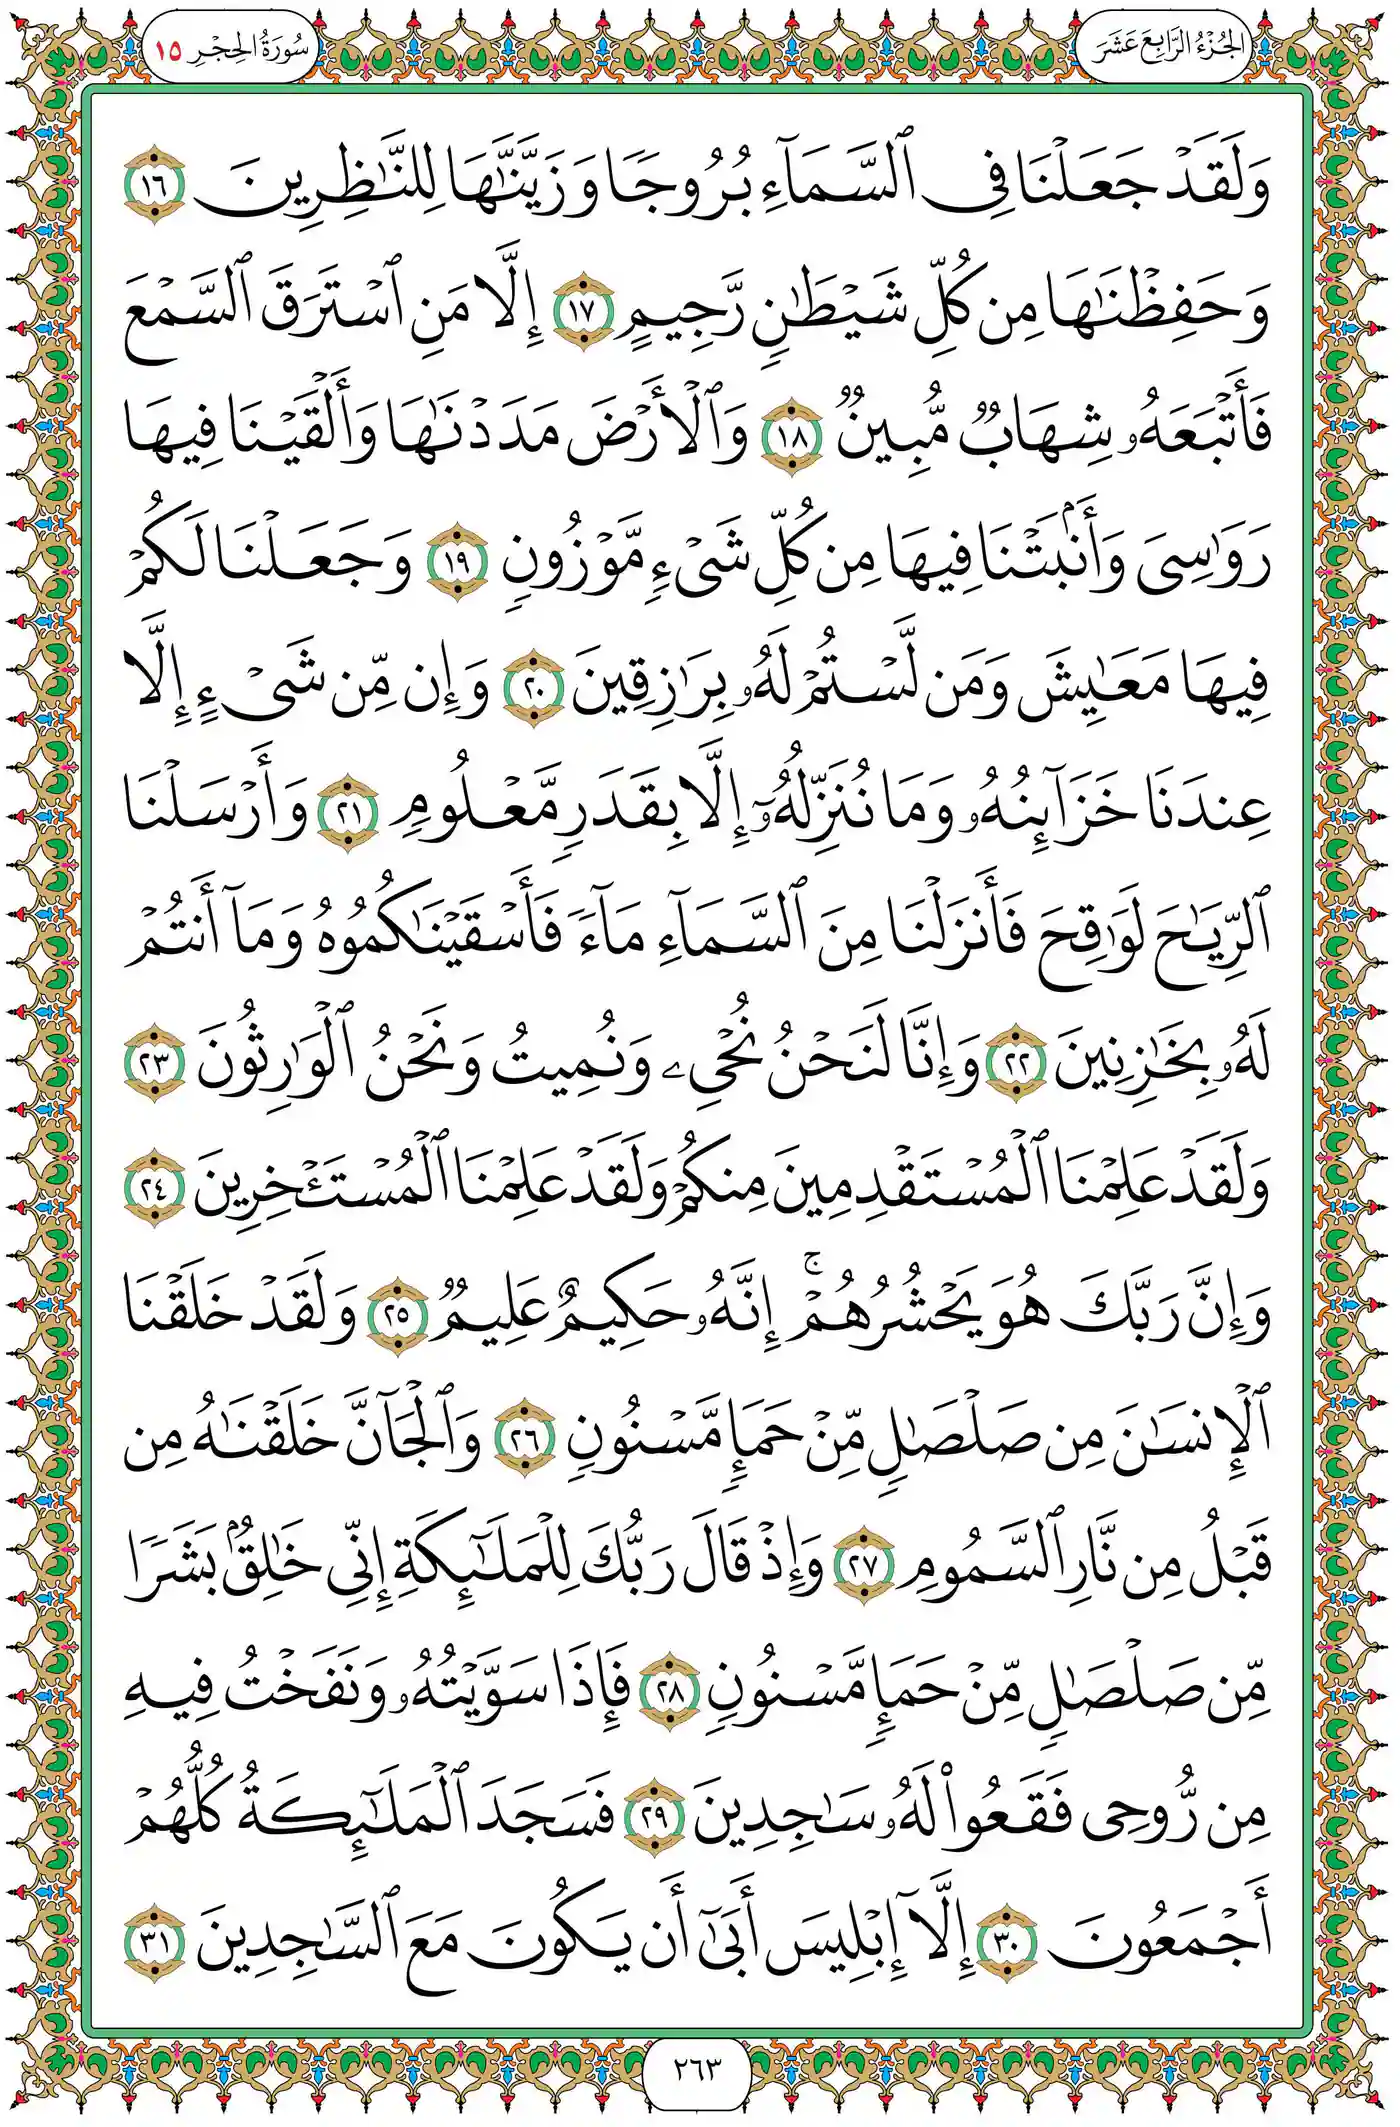 الجُزْءُ الرَّابِعَ عَشَرَ
سُورَةُ الحِجْرِ ١٥
وَلَقَدْ جَعَلْنَا فِى ٱلسَّمَآءِ بُرُوجًا وَزَيَّنَّـٰهَا لِلنَّـٰظِرِينَ ١٦
وَحَفِظْنَـٰهَا مِن كُلِّ شَيْطَـٰنٍ رَّجِيمٍ ١٧ إِلَّا مَنِ ٱسْتَرَقَ ٱلسَّمْعَ
فَأَتْبَعَهُۥ شِهَابٌ مُّبِينٌ ١٨ وَٱلْأَرْضَ مَدَدْنَـٰهَا وَأَلْقَيْنَا فِيهَا
رَوَٰسِىَ وَأَنۢبَتْنَا فِيهَا مِن كُلِّ شَىْءٍ مَّوْزُونٍ ١٩ وَجَعَلْنَا لَكُمْ
فِيهَا مَعَـٰيِشَ وَمَن لَّسْتُمْ لَهُۥ بِرَٰزِقِينَ ٢٠ وَإِن مِّن شَىْءٍ إِلَّا
عِندَنَا خَزَآئِنُهُۥ وَمَا نُنَزِّلُهُۥٓ إِلَّا بِقَدَرٍ مَّعْلُومٍ ٢١ وَأَرْسَلْنَا
ٱلرِّيَـٰحَ لَوَٰقِحَ فَأَنزَلْنَا مِنَ ٱلسَّمَآءِ مَآءً فَأَسْقَيْنَـٰكُمُوهُ وَمَآ أَنتُمْ
لَهُۥ بِخَـٰزِنِينَ ٢٢ وَإِنَّا لَنَحْنُ نُحْىِۦ وَنُمِيتُ وَنَحْنُ ٱلْوَٰرِثُونَ ٢٣
وَلَقَدْ عَلِمْنَا ٱلْمُسْتَقْدِمِينَ مِنكُمْ وَلَقَدْ عَلِمْنَا ٱلْمُسْتَـْٔخِرِينَ ٢٤
وَإِنَّ رَبَّكَ هُوَ يَحْشُرُهُمْ ۚ إِنَّهُۥ حَكِيمٌ عَلِيمٌ ٢٥ وَلَقَدْ خَلَقْنَا
ٱلْإِنسَـٰنَ مِن صَلْصَـٰلٍ مِّنْ حَمَإٍ مَّسْنُونٍ ٢٦ وَٱلْجَآنَّ خَلَقْنَـٰهُ مِن
قَبْلُ مِن نَّارِ ٱلسَّمُومِ ٢٧ وَإِذْ قَالَ رَبُّكَ لِلْمَلَـٰٓئِكَةِ إِنِّى خَـٰلِقٌۢ بَشَرًا
مِّن صَلْصَـٰلٍ مِّنْ حَمَإٍ مَّسْنُونٍ ٢٨ فَإِذَا سَوَّيْتُهُۥ وَنَفَخْتُ فِيهِ
مِن رُّوحِى فَقَعُوا۟ لَهُۥ سَـٰجِدِينَ ٢٩ فَسَجَدَ ٱلْمَلَـٰٓئِكَةُ كُلُّهُمْ
أَجْمَعُونَ ٣٠ إِلَّآ إِبْلِيسَ أَبَىٰٓ أَن يَكُونَ مَعَ ٱلسَّـٰجِدِينَ ٣١
٢٦٣